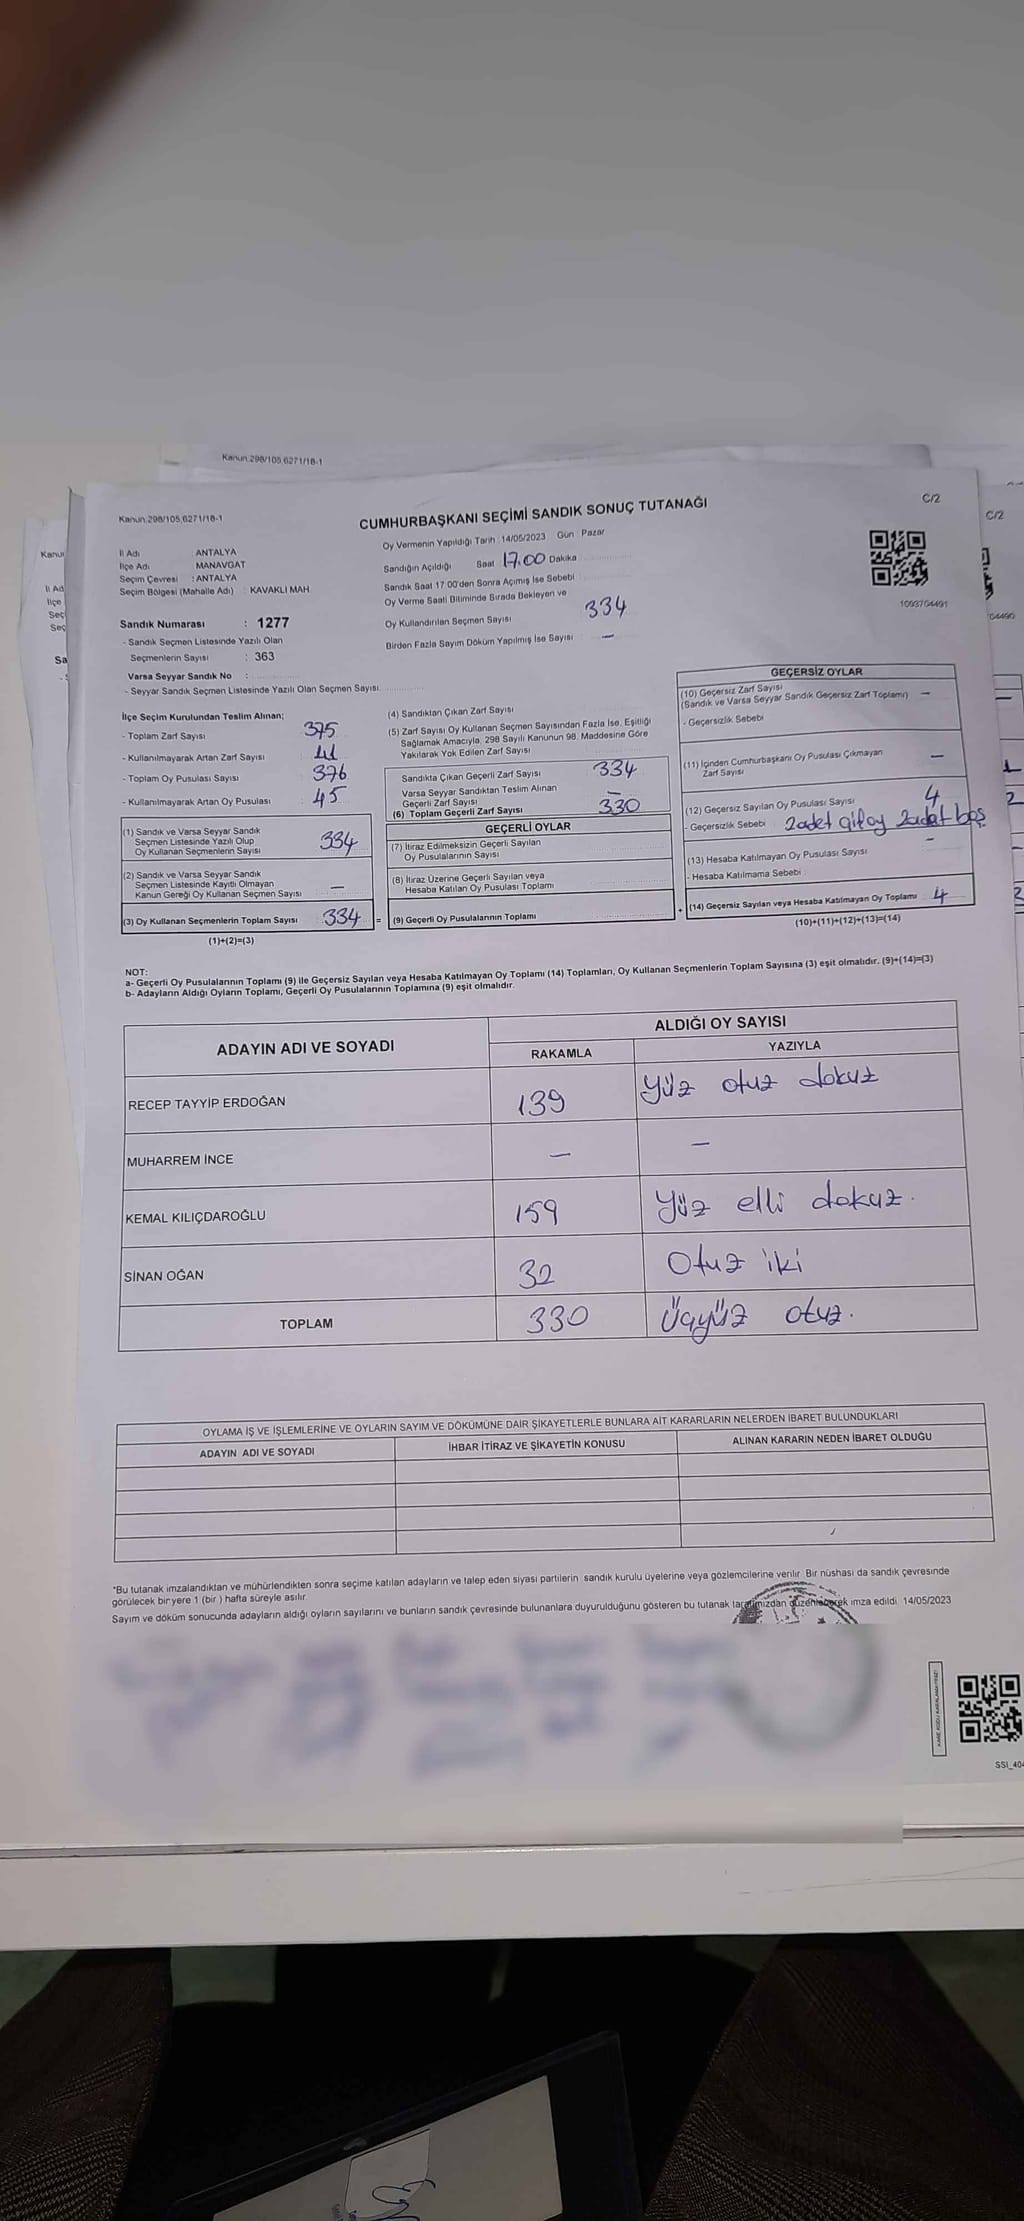 Kanun:298/105,6271/18-1
Kanun:298/105,6271/18-1
C/2
C/2
CUMHURBAŞKANI SEÇİMİ SANDIK SONUÇ TUTANAĞI
İl Adı : ANTALYA
İlçe Adı : MANAVGAT
Seçim Çevresi : ANTALYA
Seçim Bölgesi (Mahalle Adı) : KAVAKLI MAH.
Sandık Numarası : 1277
- Sandık Seçmen Listesinde Yazılı Olan
Seçmenlerin Sayısı : 363
Varsa Seyyar Sandık No :
- Seyyar Sandık Seçmen Listesinde Yazılı Olan Seçmen Sayısı:
Oy Vermenin Yapıldığı Tarih : 14/05/2023 Gün : Pazar
Sandığın Açıldığı Saat 17.00 Dakika
Sandık Saat 17:00'den Sonra Açımış İse Sebebi
Oy Verme Saati Bitiminde Sırada Bekleyen ve
Oy Kullandırılan Seçmen Sayısı 334
Birden Fazla Sayım Döküm Yapılmış İse Sayısı : —
1093704491
İlçe Seçim Kurulundan Teslim Alınan;
- Toplam Zarf Sayısı : 375
- Kullanılmayarak Artan Zarf Sayısı : 41
- Toplam Oy Pusulası Sayısı : 376
- Kullanılmayarak Artan Oy Pusulası : 45
(1) Sandık ve Varsa Seyyar Sandık
Seçmen Listesinde Yazılı Olup
Oy Kullanan Seçmenlerin Sayısı 334
(2) Sandık ve Varsa Seyyar Sandık
Seçmen Listesinde Kayıtlı Olmayan
Kanun Gereği Oy Kullanan Seçmen Sayısı —
(3) Oy Kullanan Seçmenlerin Toplam Sayısı 334 =
(1)+(2)=(3)
(4) Sandıktan Çıkan Zarf Sayısı
(5) Zarf Sayısı Oy Kullanan Seçmen Sayısından Fazla İse, Eşitliği
Sağlamak Amacıyla, 298 Sayılı Kanunun 98. Maddesine Göre
Yakılarak Yok Edilen Zarf Sayısı
Sandıkta Çıkan Geçerli Zarf Sayısı 334
Varsa Seyyar Sandıktan Teslim Alınan
Geçerli Zarf Sayısı —
(6) Toplam Geçerli Zarf Sayısı 330
GEÇERLİ OYLAR
(7) İtiraz Edilmeksizin Geçerli Sayılan
Oy Pusulalarının Sayısı
(8) İtiraz Üzerine Geçerli Sayılan veya
Hesaba Katılan Oy Pusulası Toplamı
(9) Geçerli Oy Pusulalarının Toplamı +
GEÇERSİZ OYLAR
(10) Geçersiz Zarf Sayısı
(Sandık ve Varsa Seyyar Sandık Geçersiz Zarf Toplamı) —
- Geçersizlik Sebebi
(11) İçinden Cumhurbaşkanı Oy Pusulası Çıkmayan
Zarf Sayısı —
(12) Geçersiz Sayılan Oy Pusulası Sayısı 4
- Geçersizlik Sebebi 2adet çift oy 2adet boş
(13) Hesaba Katılmayan Oy Pusulası Sayısı —
- Hesaba Katılmama Sebebi
(14) Geçersiz Sayılan veya Hesaba Katılmayan Oy Toplamı 4
(10)+(11)+(12)+(13)=(14)
NOT:
a- Geçerli Oy Pusulalarının Toplamı (9) ile Geçersiz Sayılan veya Hesaba Katılmayan Oy Toplamı (14) Toplamları, Oy Kullanan Seçmenlerin Toplam Sayısına (3) eşit olmalıdır. (9)+(14)=(3)
b- Adayların Aldığı Oyların Toplamı, Geçerli Oy Pusulalarının Toplamına (9) eşit olmalıdır.
ADAYIN ADI VE SOYADI
ALDIĞI OY SAYISI
RAKAMLA YAZIYLA
RECEP TAYYİP ERDOĞAN 139 Yüz otuz dokuz
MUHARREM İNCE — —
KEMAL KILIÇDAROĞLU 159 Yüz elli dokuz.
SİNAN OĞAN 32 Otuz iki
TOPLAM 330 Üçyüz otuz.
OYLAMA İŞ VE İŞLEMLERİNE VE OYLARIN SAYIM VE DÖKÜMÜNE DAİR ŞİKAYETLERLE BUNLARA AİT KARARLARIN NELERDEN İBARET BULUNDUKLARI
ADAYIN ADI VE SOYADI İHBAR İTİRAZ VE ŞİKAYETİN KONUSU ALINAN KARARIN NEDEN İBARET OLDUĞU
*Bu tutanak imzalandıktan ve mühürlendikten sonra seçime katılan adayların ve talep eden siyasi partilerin sandık kurulu üyelerine veya gözlemcilerine verilir. Bir nüshası da sandık çevresinde
görülecek bir yere 1 (bir ) hafta süreyle asılır.
Sayım ve döküm sonucunda adayların aldığı oyların sayılarını ve bunların sandık çevresinde bulunanlara duyurulduğunu gösteren bu tutanak tarafımızdan düzenlenerek imza edildi. 14/05/2023